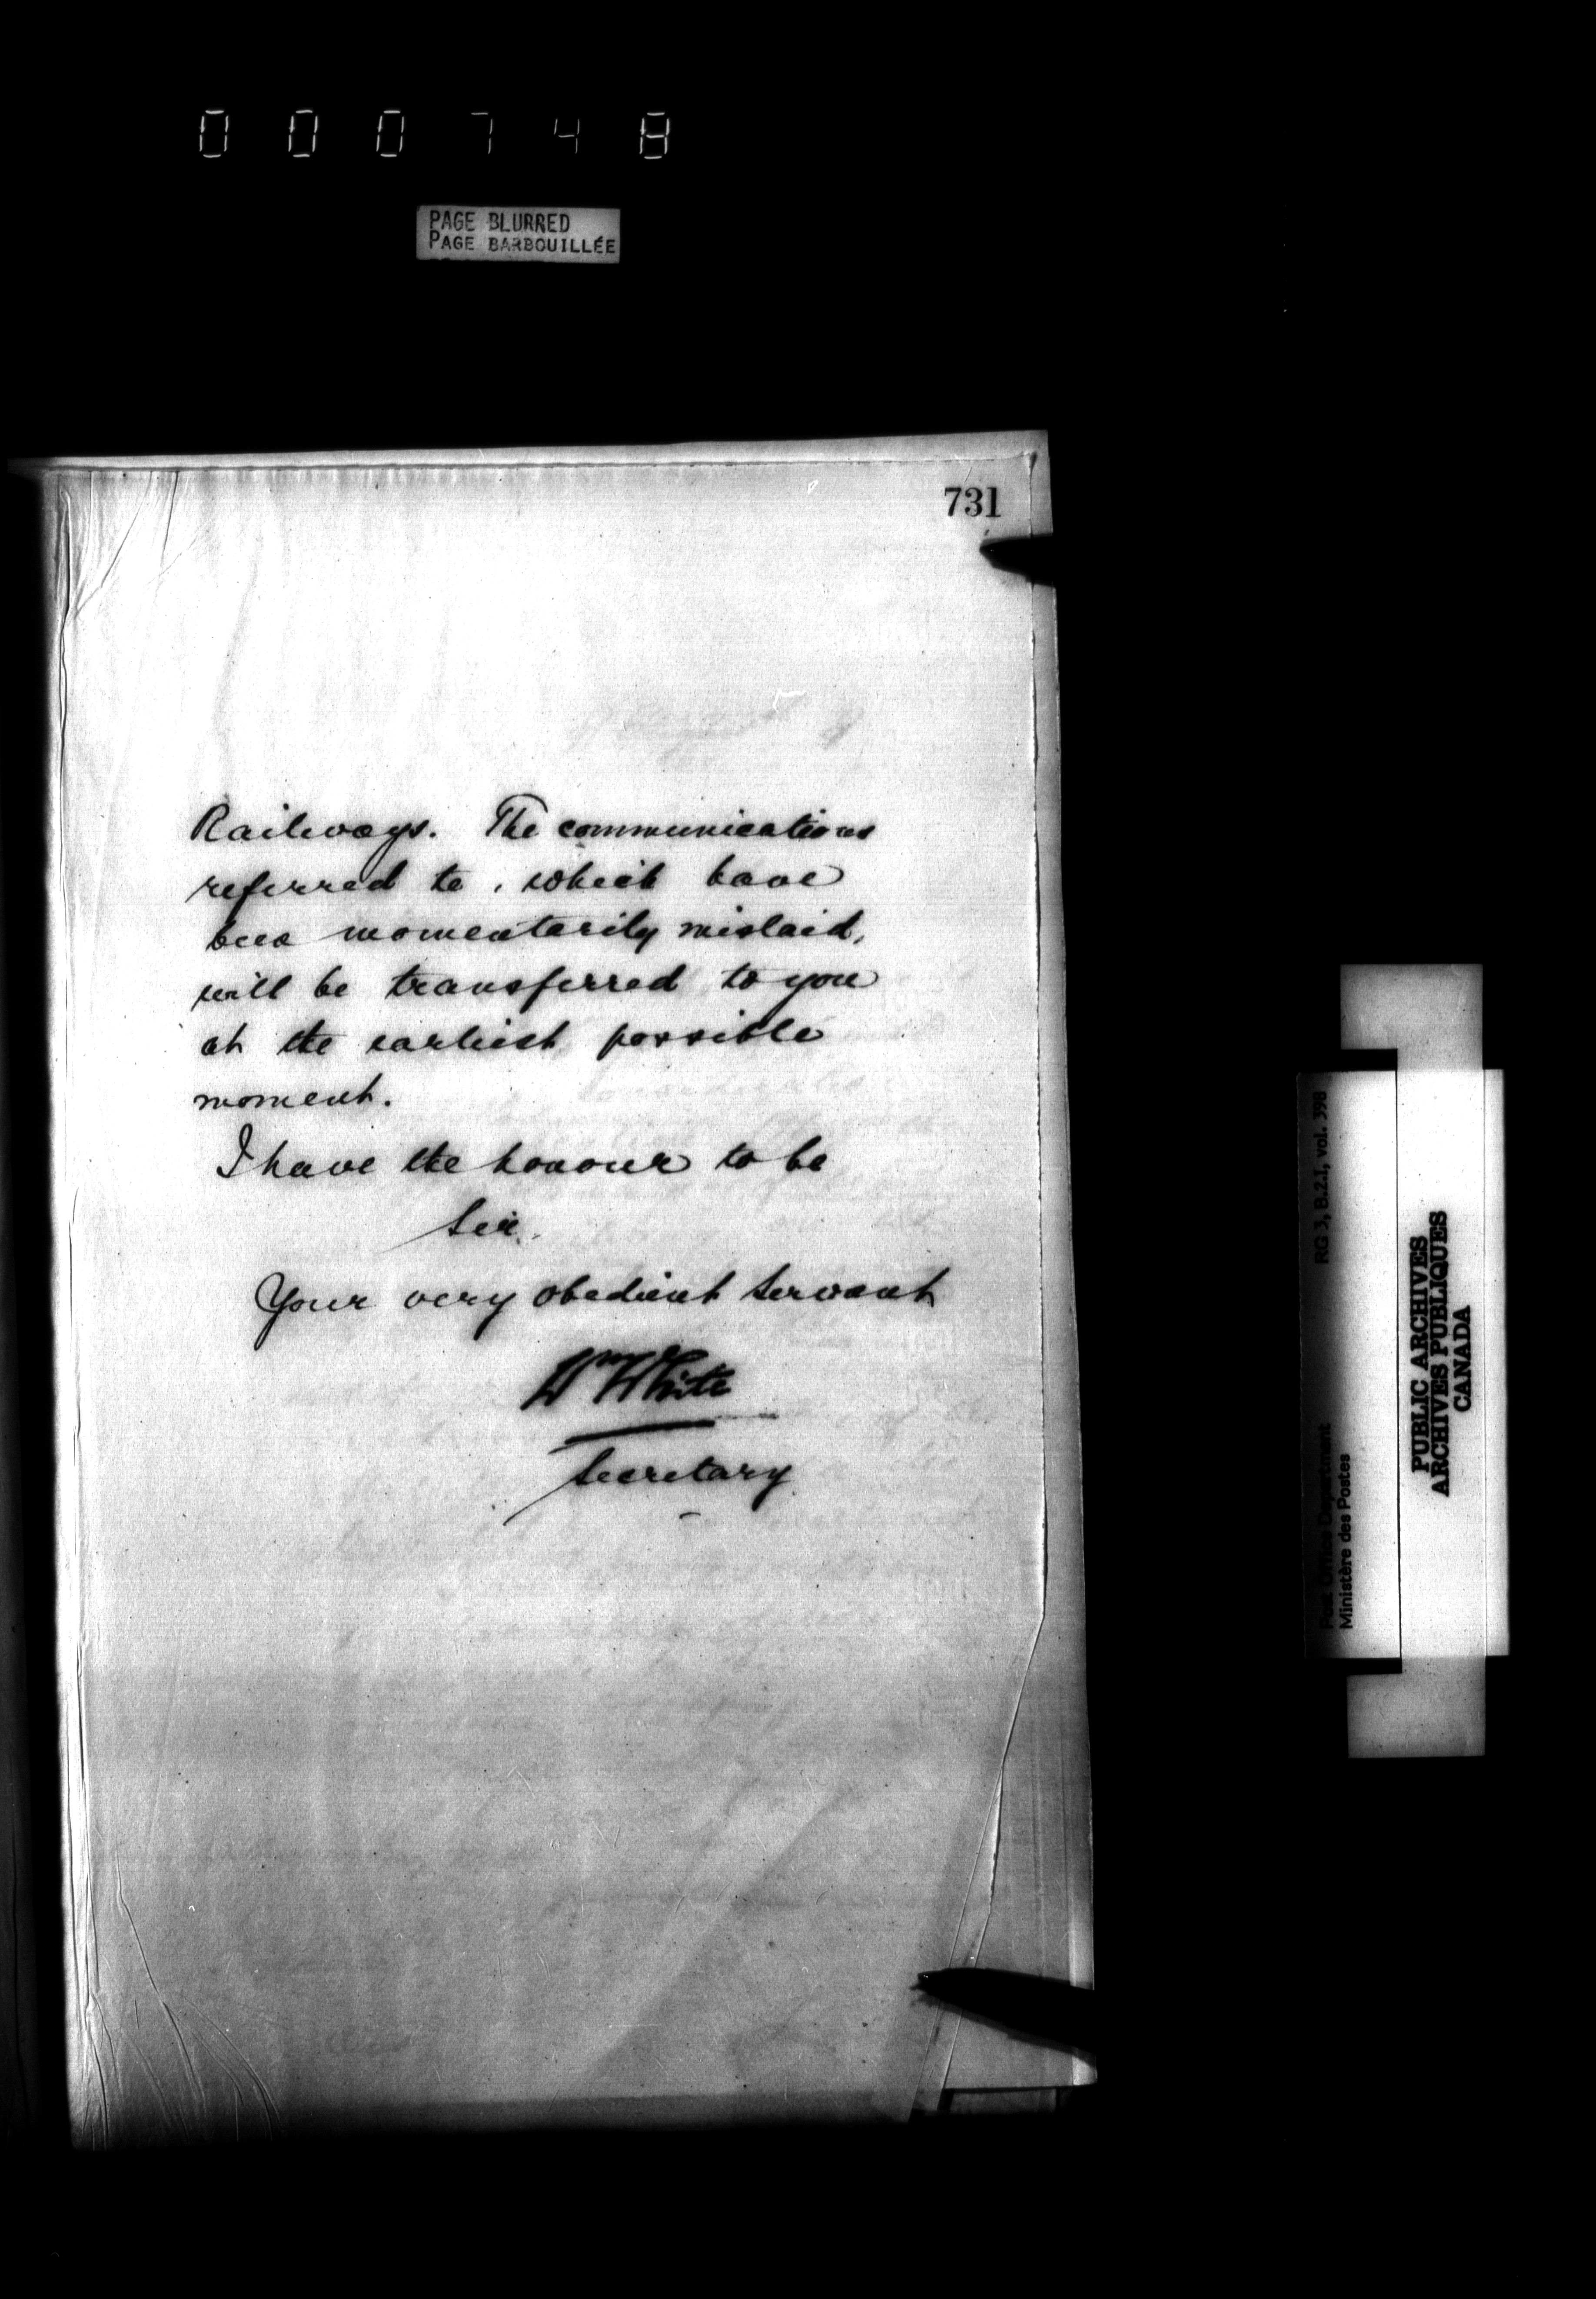 000748
PAGE BLURRED
PAGE BARBOUILLÉE
731
Railways. The communications
referred to, which have
been momentarily mislaid,
will be transferred to you
at the earliest possible
moment.
I have the honour to be
Sir,
Your very obedient servant
Wm White
Secretary
RG 3, B.2.1, vol. 398
Post Office Department
Ministère des Postes
PUBLIC ARCHIVES
ARCHIVES PUBLIQUES
CANADA